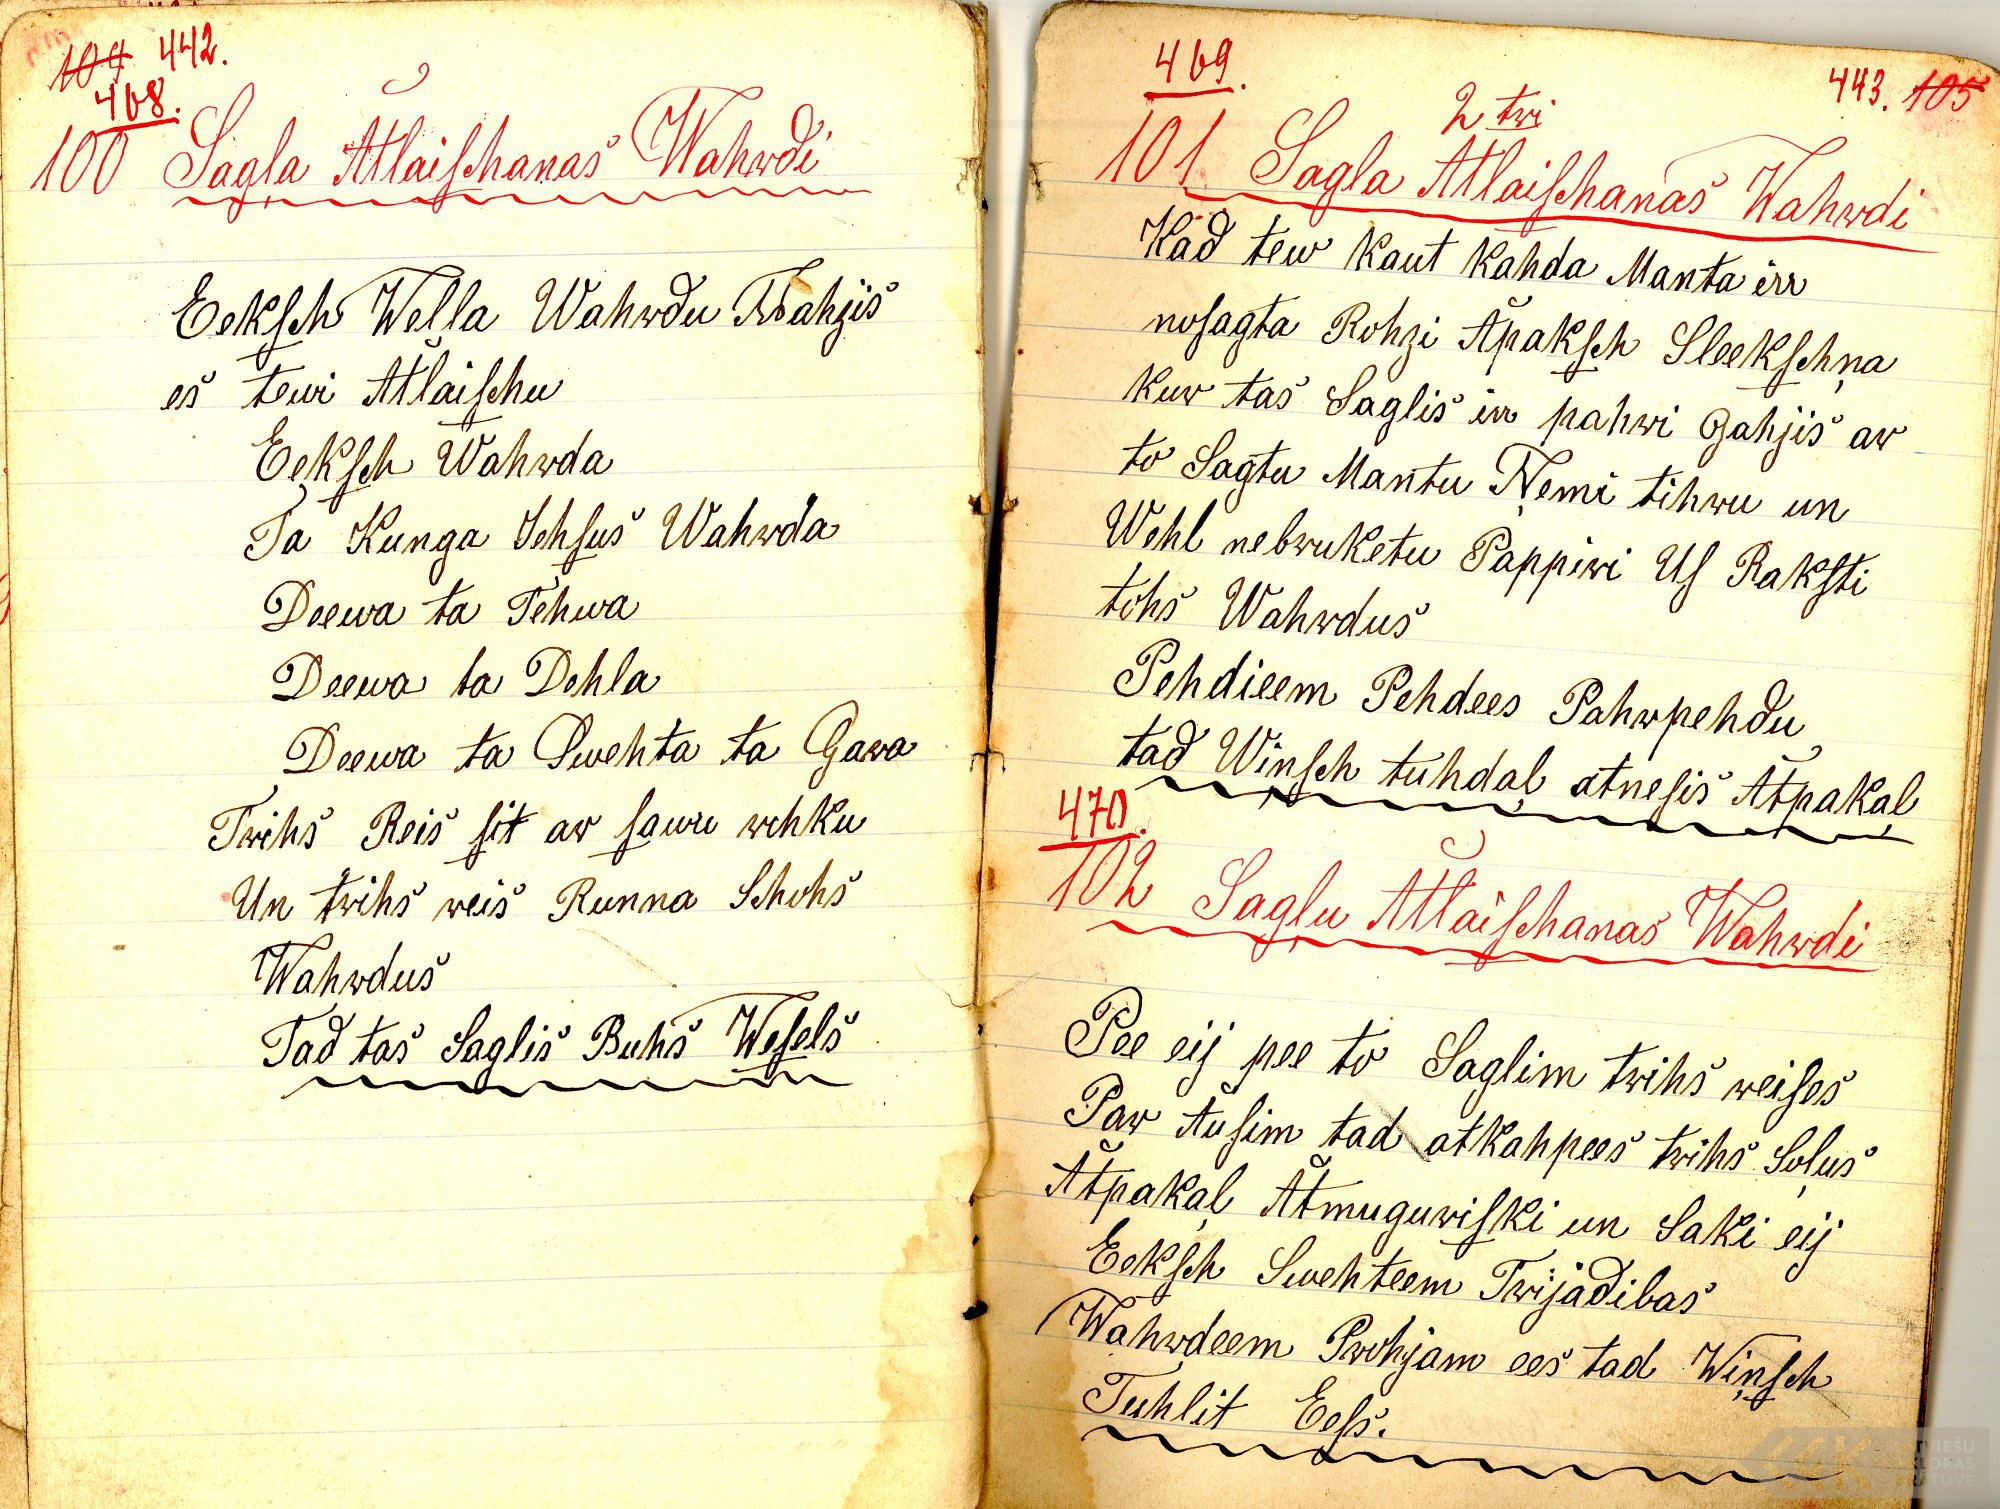 104 442.
468.
100 Sagļa Atlaiſchanas Wahrdi
Eekſch Wella Wahrdu Nahzis
es tewi Atlaiſchu
Eekſch Wahrda
Ta Kunga Jehſus Wahrda
Deewa ta Tehwa
Deewa ta Dehla
Deewa ta Swehta ta Gara
Trihs Reis ſit ar ſauru rohku
Un trihs reis Runna Schohs
Wahrdus
Tad tas Saglis Buhs Weſels
469.
443. 105
2 tri
101 Sagla Atlaiſchanas Wahrdi
Kad tew kaut kahda Manta irr
noſagta Rohzi Apakſch Sleekſchņa
kur tas Saglis irr pahri Gahjis ar
to Sagtu Mantu Ņemi tihru un
Wehl nebruketu Pappiri Uſ Rakſti
tohs Wahrdus
Pehdieem Pehdees Pahrpehdu
tad Winſch tuhdaļ atneſis Atpakaļ
470.
102 Sagļu Atlaiſchanas Wahrdi
Pee eij pee to Saglim trihs reiſes
Par Auſim tad atkahpees trihs Soļus
Atpakaļ Atmuguriſki un Saki eij
Eekſch Swehteem Trijadibas
Wahrdeem Prohjam ees tad Wiņſch
Tuhlit Eeſs.